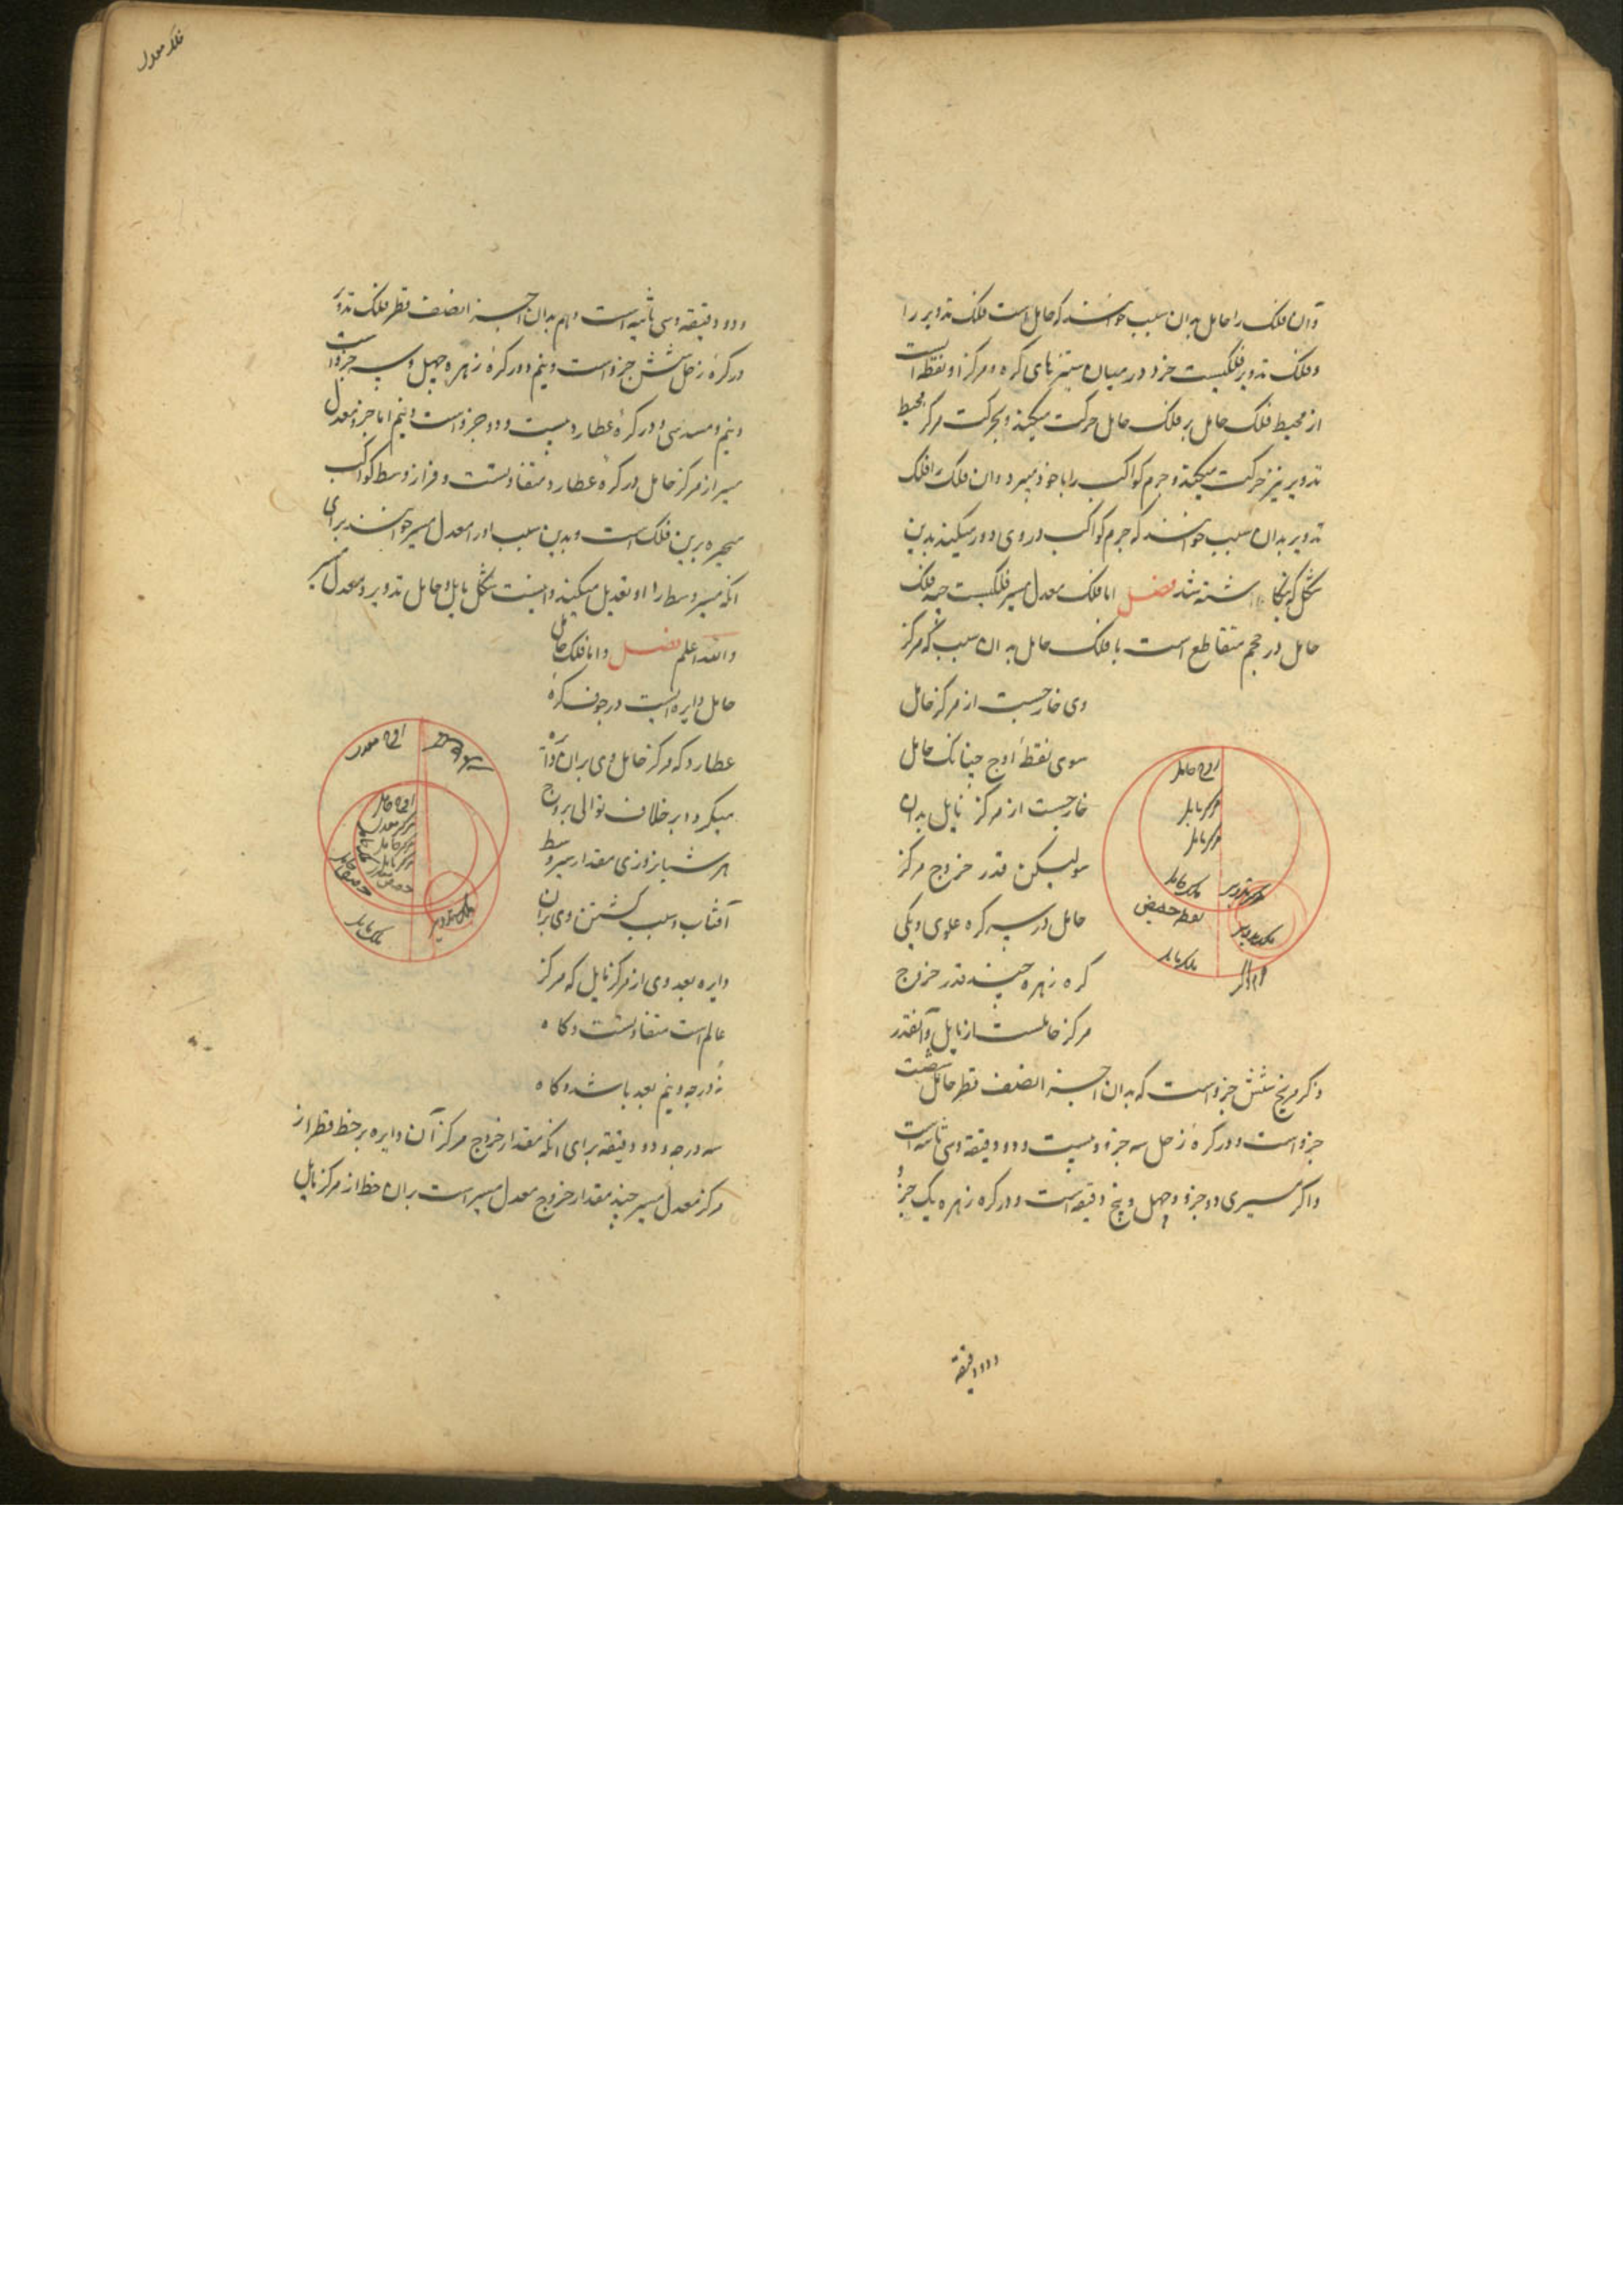 وان فلک را حامل بدان سبب خوانند که حامل است فلک تدویر را
وفلک تدویر فلکیست خرد در میان ستبرنای کره ومرکز او نقطه ایست
از محیط فلک حامل بر فلک حامل حرکت میکند وبحرکت مرکز محیط
تدویر نیز حرکت میکند وجرم کواکب را با خود میبرد وان فلک را فلک
تدویر بدان سبب خوانند که جرم کواکب در وی دور میکند بدین
شکل که نگاشته شد فصل اما فلک معدل مسیر فلکیست چند فلک
حامل در حجم متقاطع است با فلک حامل بدان سبب که مرکز
وی خارجست از مرکز حامل
سوی نقطهٔ اوج چنانک حامل
خارجست از مرکز مایل بدان
سو لیکن قدر خروج مرکز
حامل در سه کره علوی ویکی
کره زهره چند قدر خروج
مرکز حاملست از مایل وآنقدر
در کره مریخ شش جزو است که بدان اجزا نصف قطر حامل شصت
جزو است ودر کرهٔ زحل سه جزو وبیست ودو دقیقه وسی ثانیه است
ودر کره مشتری دو جزو وچهل وپنج دقیقه است ودر کره زهره یک جزو
اوج حامل
مرکز حامل
مرکز مایل
فلک حامل
نقطه حضیض
فلک مایل
مرکز تدویر
فلک تدویر
ودو دقیقه
فلک معدل
ودو دقیقه وسی ثانیه است وهم بدان اجزا نصف قطر فلک تدویر
در کرهٔ زحل شش جزو است ونیم ودر کرهٔ زهره چهل وسه جزو است
ونیم وسدسی ودر کرهٔ عطارد بیست ودو جزو است ونیم اما خروج معدل
مسیر از مرکز حامل در کرهٔ عطارد متفاوتست وفراز وسط کواکب
متحیره برین فلک است وبدین سبب او را معدل مسیر خوانند برای
انکه مسیر وسط را او تعدیل میکند واینست شکل مایل وحامل تدویر ومعدل مسیر
والله اعلم فصل واما فلک حامل
حامل دایره ایست در جوف کرهٔ
عطارد که مرکز حامل وی بران دایره
میگردد بر خلاف توالی بروج
هر شبانروزی مقدار سیر وسط
آفتاب وسبب گشتن وی بران
دایره بعد وی از مرکز مایل که مرکز
عالم است متفاوتست وگاه
نه درجه ونیم بعد باشد وگاه
سه درجه ودو دقیقه برای انکه مقدار خروج مرکز آن دایره بر خط قطر از
مرکز معدل مسیر چند مقدار خروج معدل مسیر است بران خط از مرکز مایل
اوج معدل
اوج حامل
مرکز معدل
مرکز حامل
مرکز مایل
حضیض حامل
فلک مایل
فلک تدویر